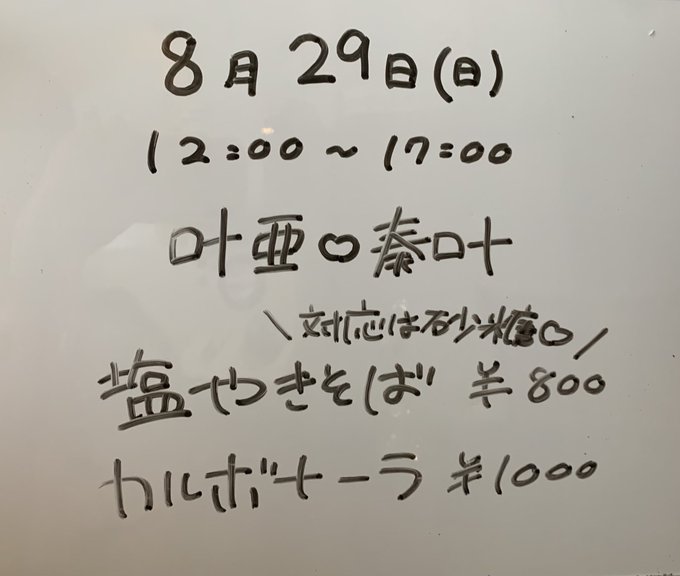 8月29日(日)
12:00～17:00
叶亜♡泰叶
\対応は砂糖♡/
塩やきそば ¥800
カルボナーラ ¥1000